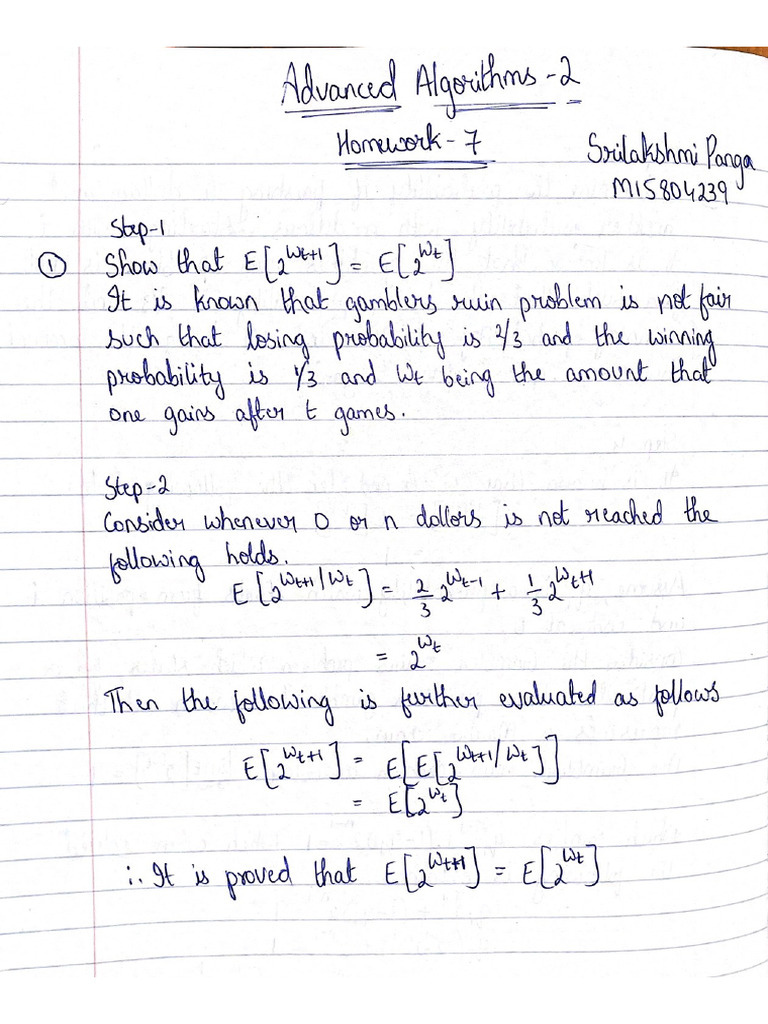 Advanced Algorithms - 2
Homework - 7
Srilakshmi Panga
M15804239
Step-1
① Show that E[2^{W_{t+1}}] = E[2^{W_t}]
It is known that gamblers ruin problem is not fair
such that losing probability is 2/3 and the winning
probability is 1/3 and W_t being the amount that
one gains after t games.
Step-2
Consider whenever 0 or n dollors is not reached the
following holds.
E[2^{W_{t+1}/W_t}] = 2/3 2^{W_t-1} + 1/3 2^{W_t+1}
= 2^{W_t}
Then the following is further evaluated as follows
E[2^{W_{t+1}}] = E[E[2^{W_{t+1}/W_t}]]
= E[2^{W_t}]
∴ It is proved that E[2^{W_{t+1}}] = E[2^{W_t}]